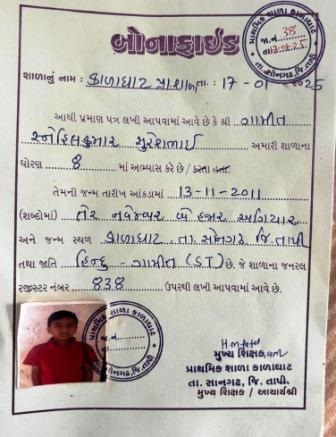 બોનાફાઈડ
શાળાનું નામ : કાળાઘાટ પ્રા.શાળા તા. : 17-01-2025
આથી પ્રમાણ પત્ર લખી આપવામાં આવે છે કે શ્રી ગામીત
સ્નેહિલકુમાર સુરેશભાઈ અમારી શાળાના
ધોરણ 8 માં અભ્યાસ કરે છે / કરતા હતા.
તેમની જન્મ તારીખ આંકડામાં 13-11-2011
(શબ્દોમાં) તેર નવેમ્બર બે હજાર અગિયાર
અને જન્મ સ્થળ કાળાઘાટ તા. સોનગઢ જિ. તાપી
તથા જાતિ હિન્દુ - ગામીત (S.T) છે. જે શાળાના જનરલ
રજીસ્ટર નંબર 838 ઉપરથી લખી આપવામાં આવે છે.
પ્રાથમિક શાળા કાળાઘાટ
જા.નં. 38
તા. સોનગઢ, જિ. તાપી
પ્રાથમિક શાળા કાળાઘાટ
જા.નં.
તા.
મુખ્ય શિક્ષક
પ્રાથમિક શાળા કાળાઘાટ
તા. સોનગઢ, જિ. તાપી.
મુખ્ય શિક્ષક / આચાર્યશ્રી